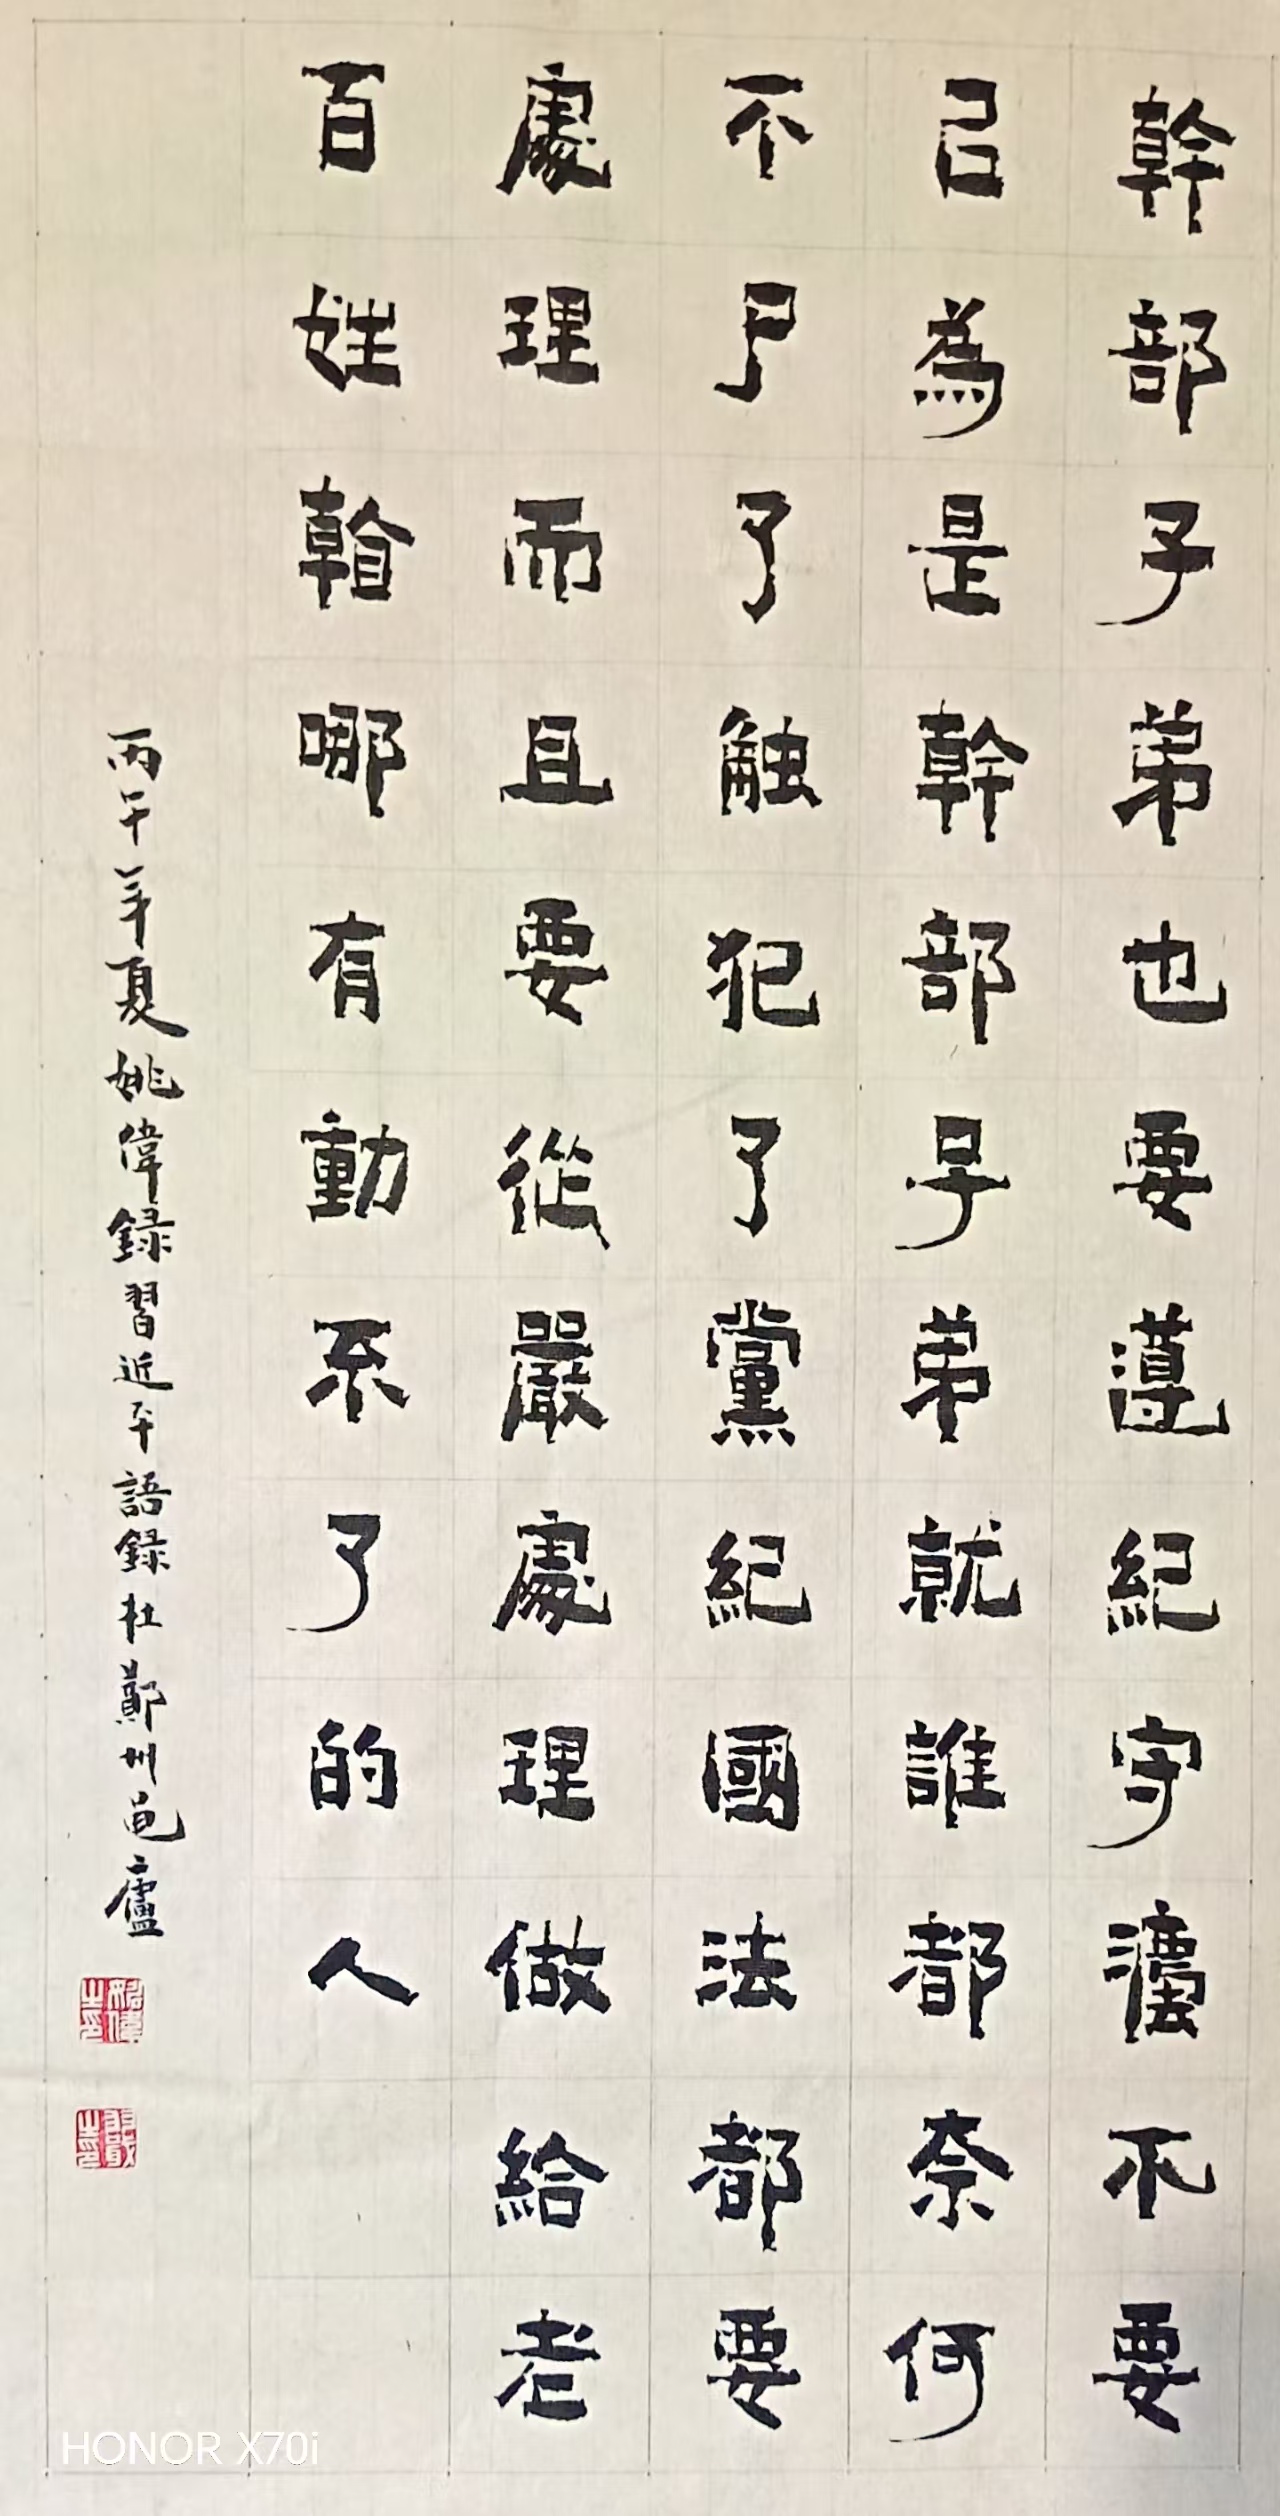 幹部子弟也要遵紀守灋不要
㠯為是幹部子弟就誰都奈何
不了触犯了黨紀國法都要
處理而且要從嚴處理做給老
百姓哪有動不了的人
丙午年夏姚偉録習近平語録杜鄭州廬
姚偉之印
HONOR X70i